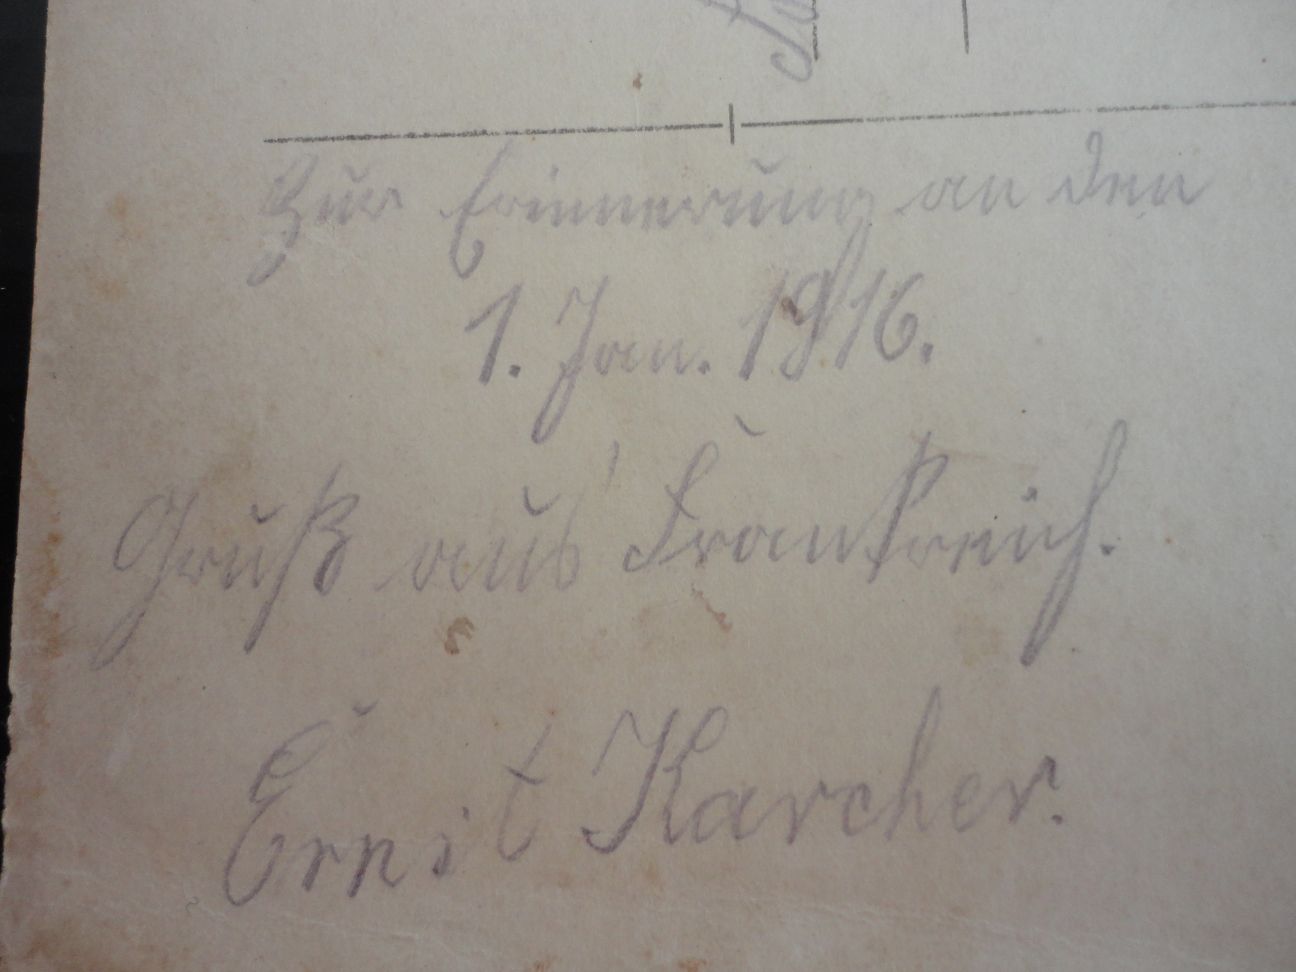 Zur Erinnerung an den
1. Jan. 1916.
Gruß aus Frankreich.
Ernst Karcher.